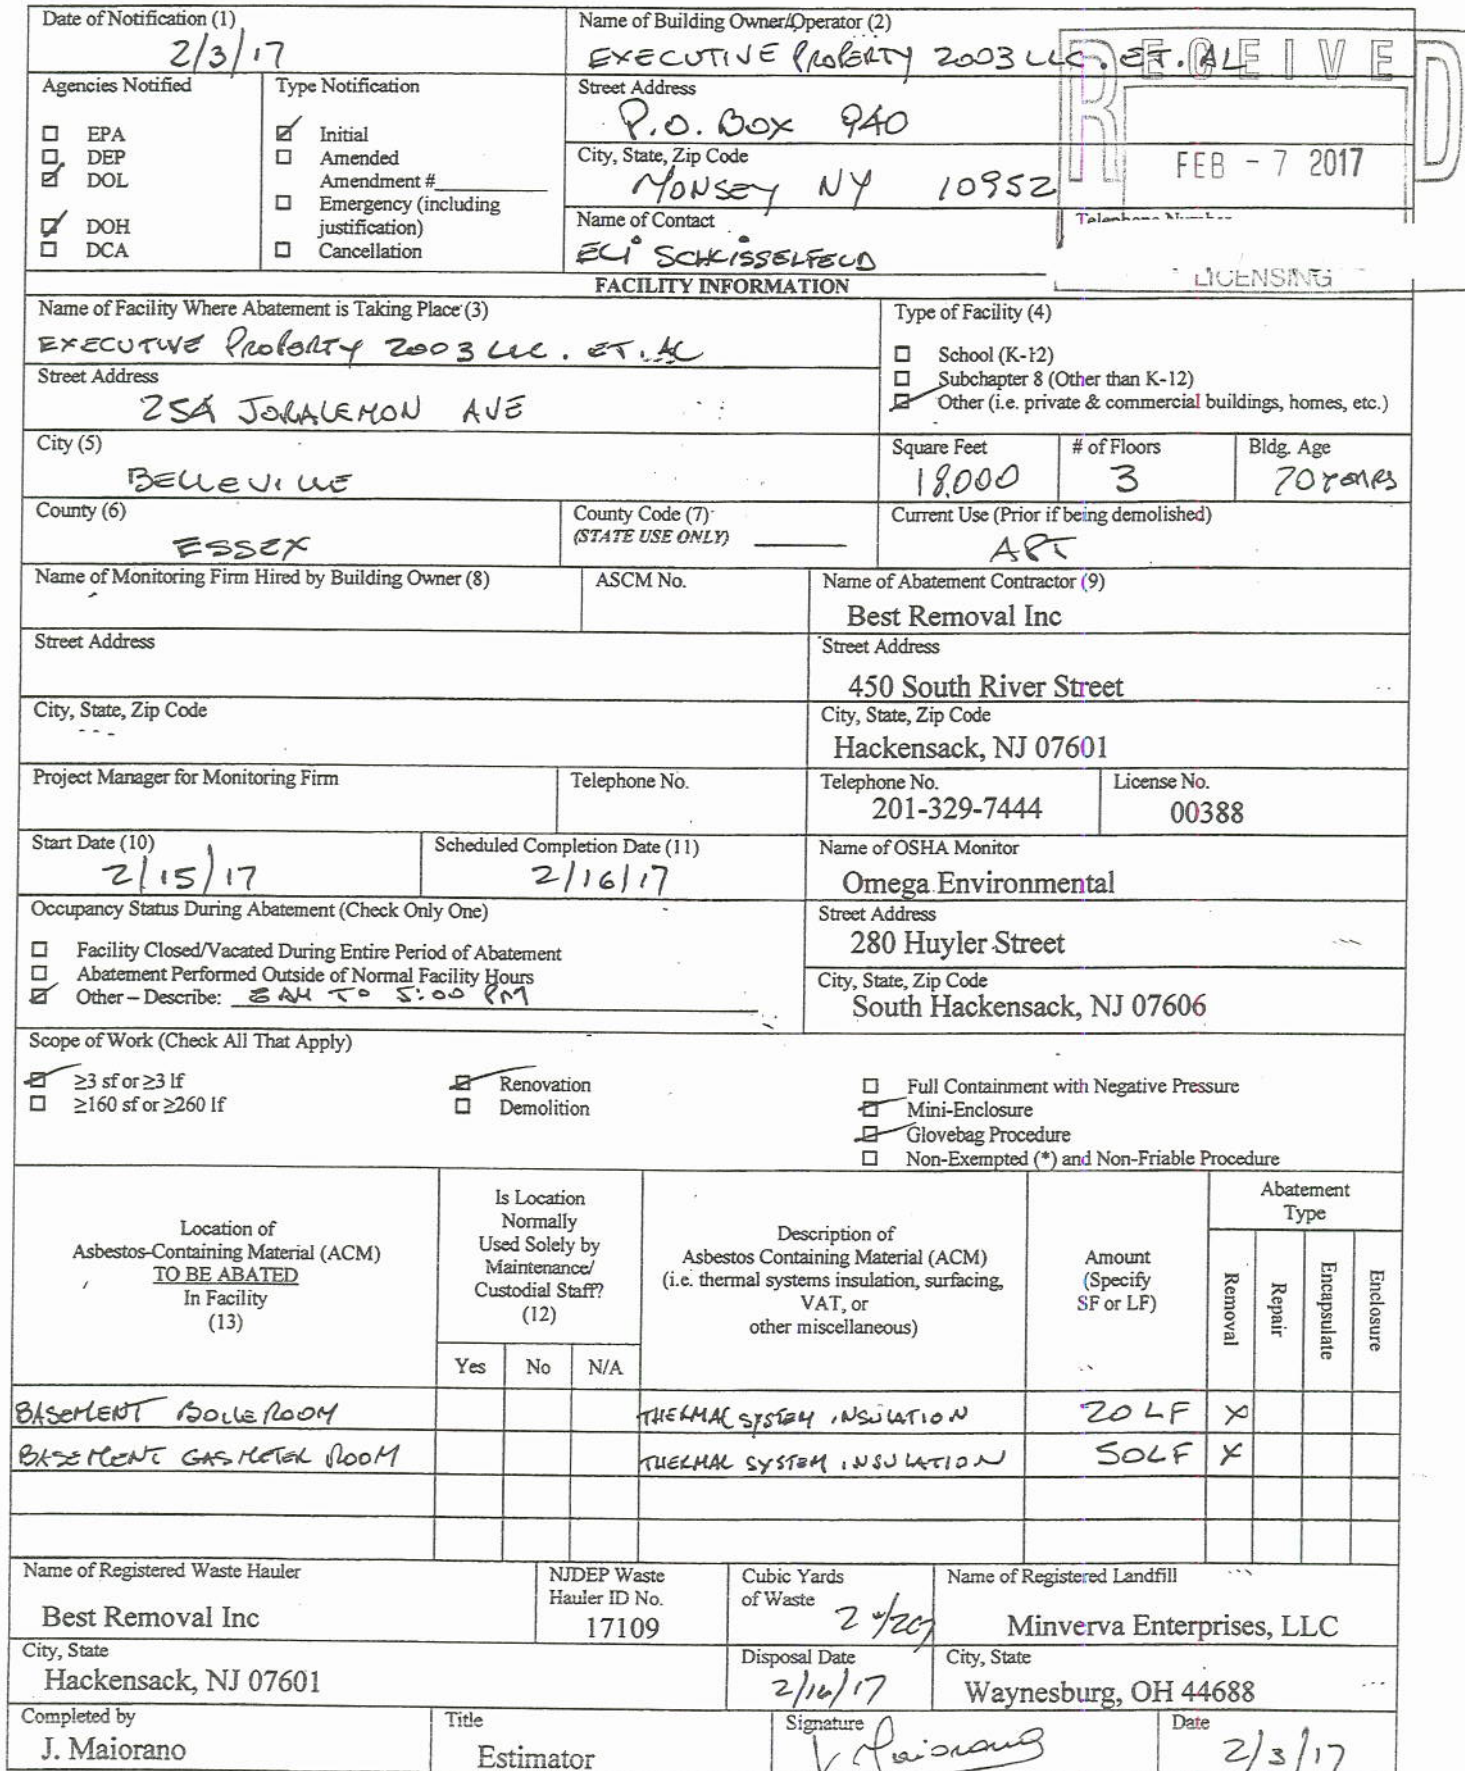 Date of Notification (1)
2/3/17
Name of Building Owner/Operator (2)
EXECUTIVE PROPERTY 2003 LLC. ET. AL
RECEIVED
FEB - 7 2017
LICENSING
Agencies Notified
EPA
DEP
DOL
DOH
DCA
Type Notification
Initial
Amended
Amendment #
Emergency (including
justification)
Cancellation
Street Address
P.O. BOX 940
City, State, Zip Code
MONSEY NY 10952
Name of Contact
ELI SCHEISSELFELD
Telephone Number
FACILITY INFORMATION
Name of Facility Where Abatement is Taking Place (3)
EXECUTIVE PROPERTY 2003 LLC. ET. AL
Type of Facility (4)
School (K-12)
Subchapter 8 (Other than K-12)
Other (i.e. private & commercial buildings, homes, etc.)
Street Address
25A JORALEMON AVE
City (5)
BELLEVILLE
Square Feet
18,000
# of Floors
3
Bldg. Age
70 YEARS
County (6)
ESSEX
County Code (7)
(STATE USE ONLY)
Current Use (Prior if being demolished)
APT
Name of Monitoring Firm Hired by Building Owner (8)
ASCM No.
Name of Abatement Contractor (9)
Best Removal Inc
Street Address
Street Address
450 South River Street
City, State, Zip Code
City, State, Zip Code
Hackensack, NJ 07601
Project Manager for Monitoring Firm
Telephone No.
Telephone No.
201-329-7444
License No.
00388
Start Date (10)
2/15/17
Scheduled Completion Date (11)
2/16/17
Name of OSHA Monitor
Omega Environmental
Occupancy Status During Abatement (Check Only One)
Facility Closed/Vacated During Entire Period of Abatement
Abatement Performed Outside of Normal Facility Hours
Other – Describe: 8 AM TO 5:00 PM
Street Address
280 Huyler Street
City, State, Zip Code
South Hackensack, NJ 07606
Scope of Work (Check All That Apply)
≥3 sf or ≥3 lf
≥160 sf or ≥260 lf
Renovation
Demolition
Full Containment with Negative Pressure
Mini-Enclosure
Glovebag Procedure
Non-Exempted (*) and Non-Friable Procedure
Location of
Asbestos-Containing Material (ACM)
TO BE ABATED
In Facility
(13)
Is Location
Normally
Used Solely by
Maintenance/
Custodial Staff?
(12)
Yes No N/A
Description of
Asbestos Containing Material (ACM)
(i.e. thermal systems insulation, surfacing,
VAT, or
other miscellaneous)
Amount
(Specify
SF or LF)
Abatement
Type
Removal
Repair
Encapsulate
Enclosure
BASEMENT BOILE ROOM THERMAL SYSTEM INSULATION 20 LF X
BASEMENT GAS METER ROOM THERMAL SYSTEM INSULATION 50 LF X
Name of Registered Waste Hauler
Best Removal Inc
NJDEP Waste
Hauler ID No.
17109
Cubic Yards
of Waste
2
Name of Registered Landfill
Minverva Enterprises, LLC
City, State
Hackensack, NJ 07601
Disposal Date
2/16/17
City, State
Waynesburg, OH 44688
Completed by
J. Maiorano
Title
Estimator
Signature
J. Maiorano
Date
2/3/17